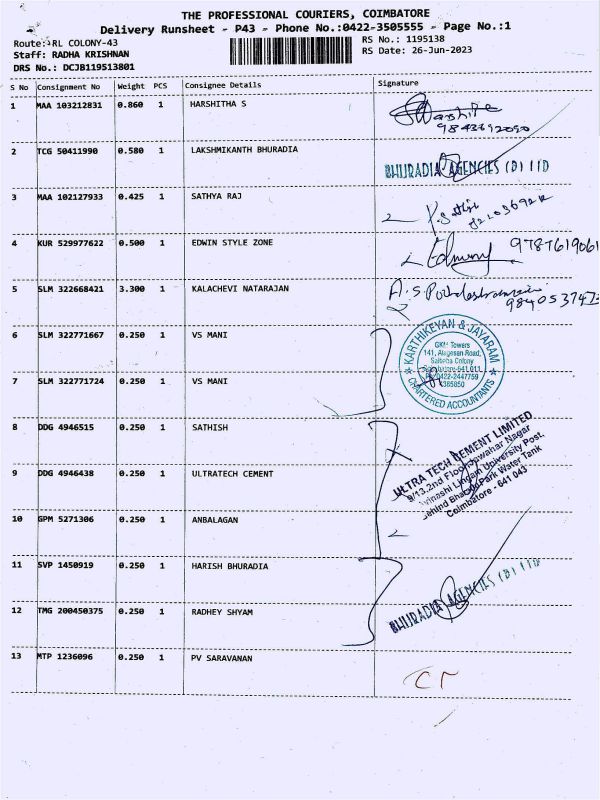 THE PROFESSIONAL COURIERS, COIMBATORE
Delivery Runsheet - P43 - Phone No.:0422-3505555 - Page No.:1
Route: RL COLONY-43
RS No.: 1195138
Staff: RADHA KRISHNAN
RS Date: 26-Jun-2023
DRS No.: DCJB119513801
S No Consignment No Weight PCS Consignee Details Signature
1 MAA 103212831 0.860 1 HARSHITHA S
2 TCG 50411990 0.580 1 LAKSHMIKANTH BHURADIA
BHURADIA AGENCIES (P) LTD
3 MAA 102127933 0.425 1 SATHYA RAJ
4 KUR 529977622 0.500 1 EDWIN STYLE ZONE
9787619061
5 SLM 322668421 3.300 1 KALACHEVI NATARAJAN
6 SLM 322771667 0.250 1 VS MANI
7 SLM 322771724 0.250 1 VS MANI
KARTHIKEYAN & JAYARAM
GKM Towers
141, Alagesan Road,
Saibaba Colony
Coimbatore-641 011.
0422-2447759
CHARTERED ACCOUNTANTS
8 DDG 4946515 0.250 1 SATHISH
9 DDG 4946438 0.250 1 ULTRATECH CEMENT
ULTRA TECH CEMENT LIMITED
9/13, 2nd Floor, Jawahar Nagar
Avinashi Lingam University Post,
Behind Bharathi Park Water Tank
Coimbatore - 641 043
10 GPM 5271306 0.250 1 ANBALAGAN
11 SVP 1450919 0.250 1 HARISH BHURADIA
BHURADIA AGENCIES (P) LTD
12 TMG 200450375 0.250 1 RADHEY SHYAM
13 MTP 1236096 0.250 1 PV SARAVANAN